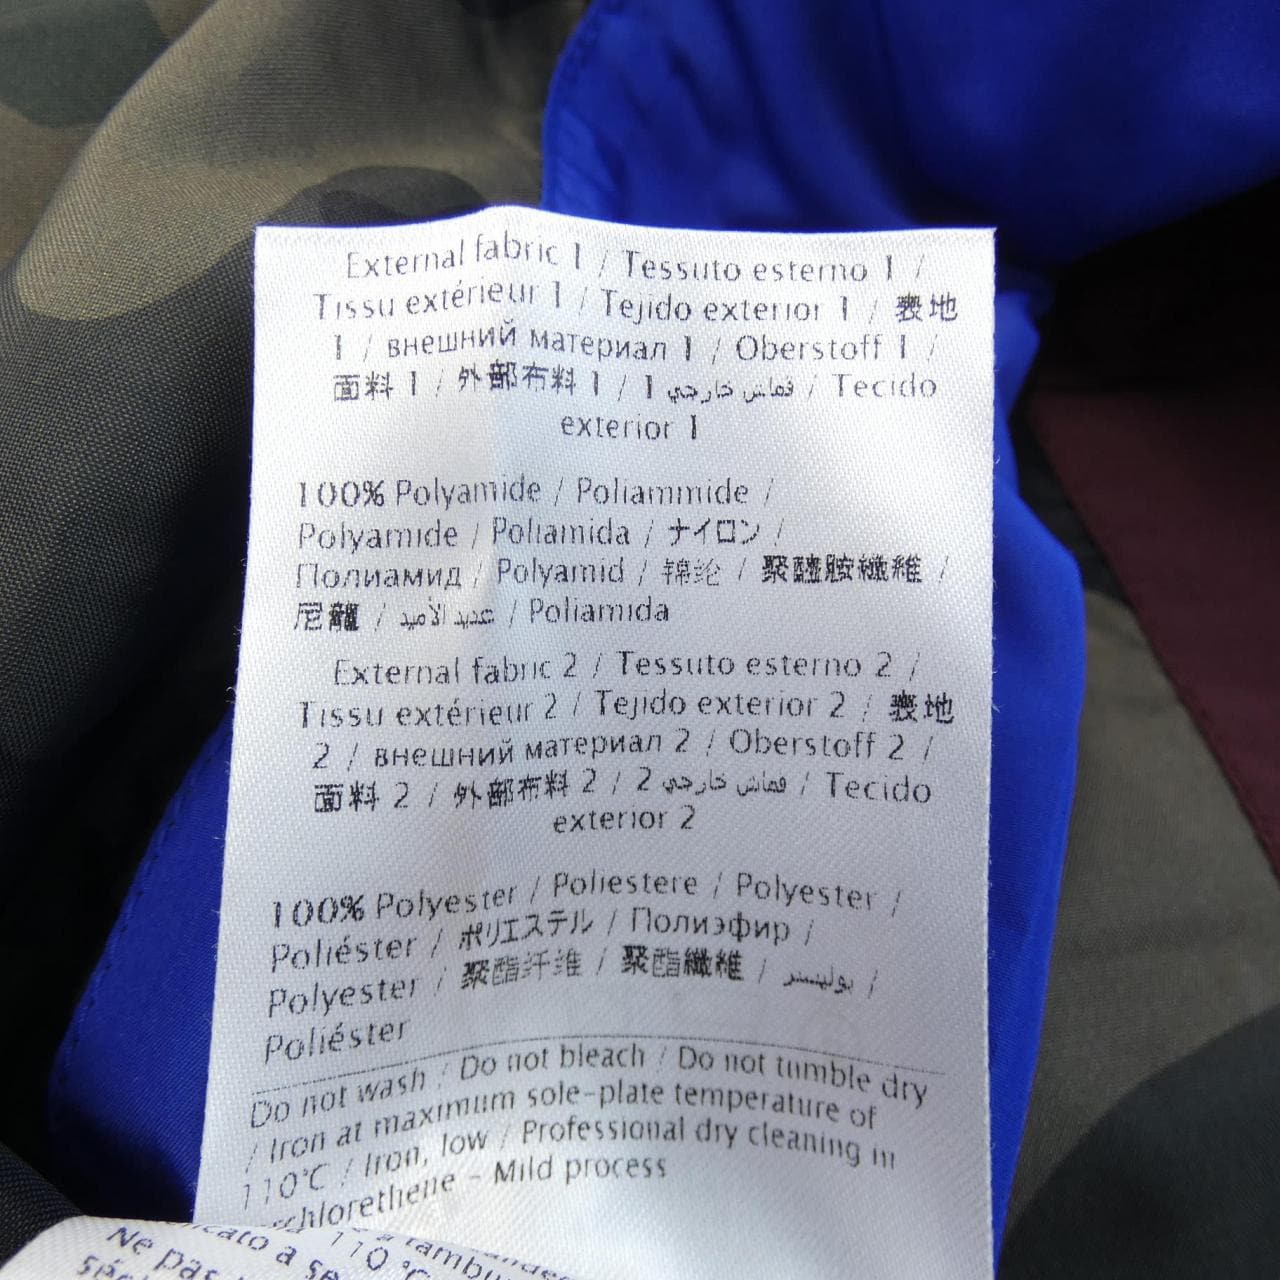 External fabric 1 / Tessuto esterno 1 /
Tissu extérieur 1 / Tejido exterior 1 / 表地
1 / внешний материал 1 / Oberstoff 1 /
面料 1 / 外部布料 1 / 1 قماش خارجي / Tecido
exterior 1
100% Polyamide / Poliammide /
Polyamide / Poliamida / ナイロン /
Полиамид / Polyamid / 锦纶 / 聚醯胺纖維 /
尼龍 / عديد الأميد / Poliamida
External fabric 2 / Tessuto esterno 2 /
Tissu extérieur 2 / Tejido exterior 2 / 表地
2 / внешний материал 2 / Oberstoff 2 /
面料 2 / 外部布料 2 / 2 قماش خارجي / Tecido
exterior 2
100% Polyester / Poliestere / Polyester /
Poliéster / ポリエステル / Полиэфир /
Polyester / 聚酯纤维 / 聚酯纖維 / بوليستر /
Poliéster
Do not wash / Do not bleach / Do not tumble dry
/ Iron at maximum sole-plate temperature of
110°C / Iron, low / Professional dry cleaning in
rchlorethene - Mild process
110 °C
Ne pas